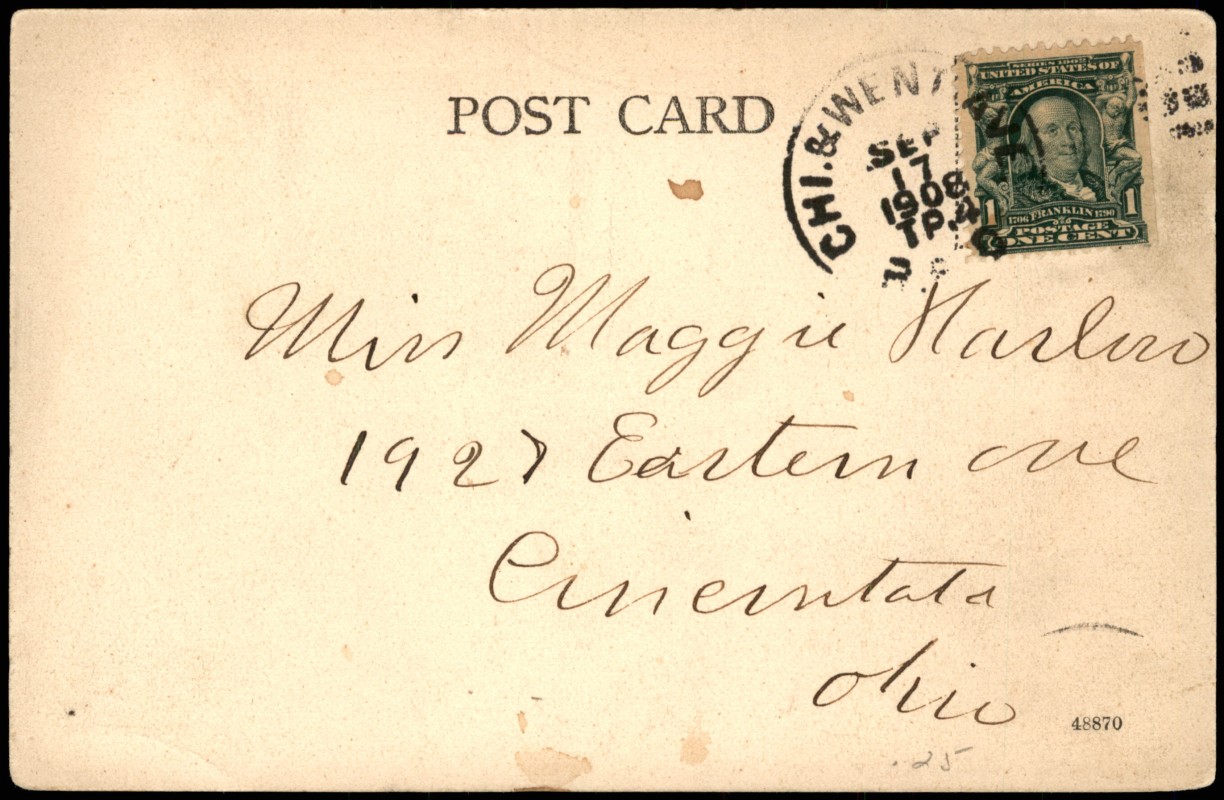 POST CARD
CHI. & WENT
SEP
17
1908
TP.4
SERIES 1902
UNITED STATES OF
AMERICA
1 1
1706 FRANKLIN 1790
POSTAGE
ONE CENT
Miss Maggie Harlow
1927 Eastern ave
Cincintata
Ohio
48870
.25